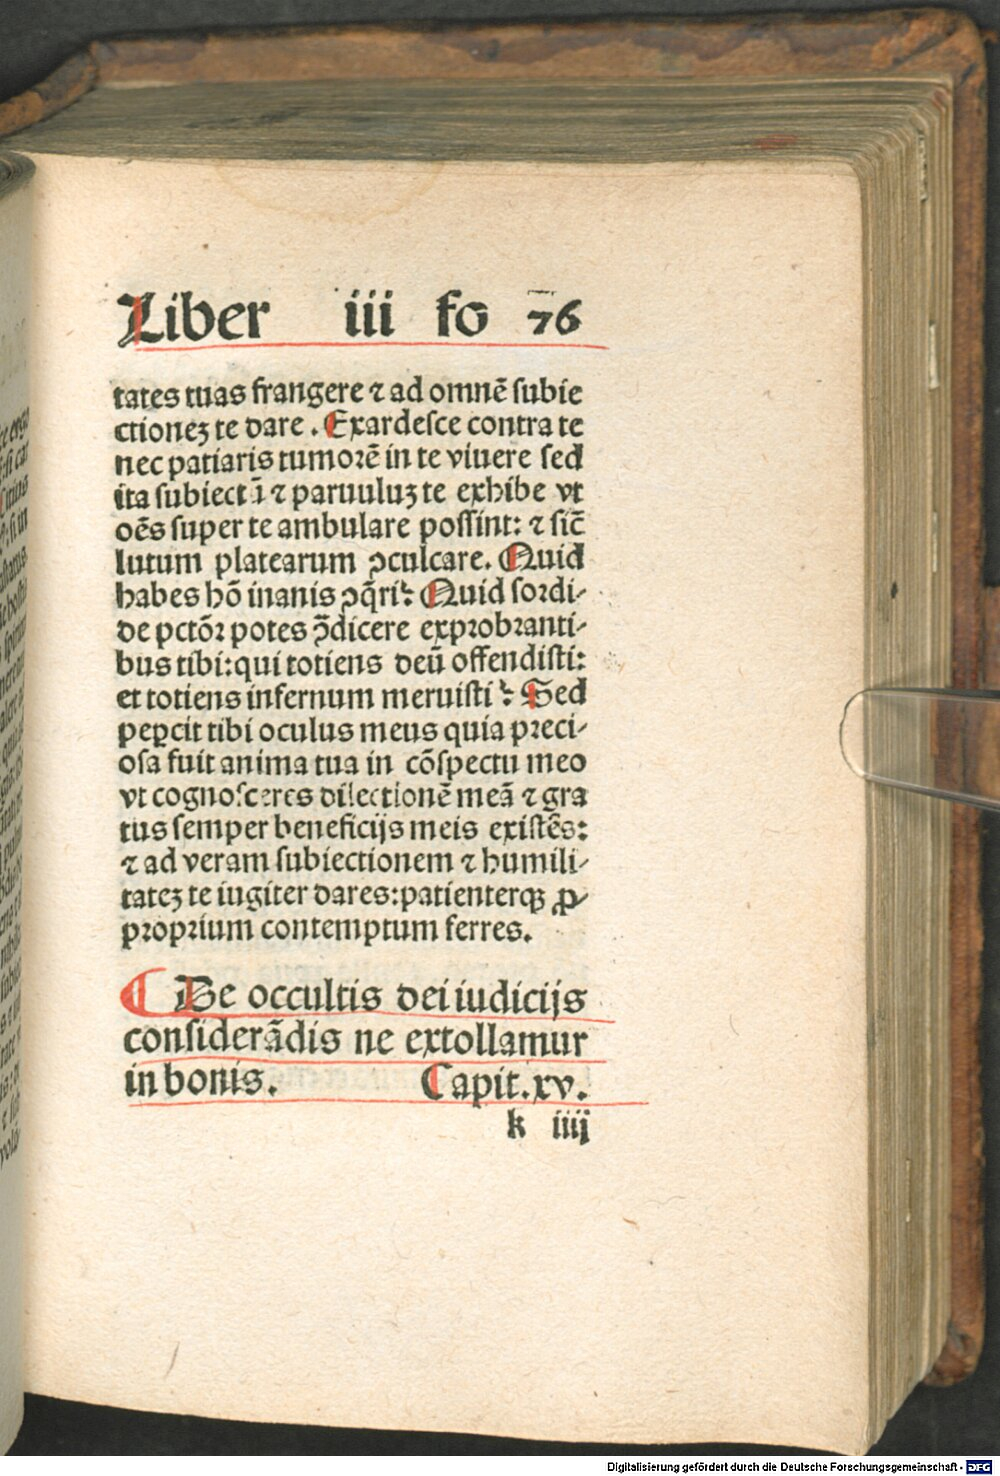 Liber iii fo 76
tates tuas frangere ⁊ ad omnē subie
ctioneꝫ te dare . Exardesce contra te
nec patiaris tumorē in te viuere sed
ita subiectū ⁊ paruuluꝫ te exhibe vt
oēs super te ambulare possint: ⁊ sic̄
lutum platearum ꝯculcare. Quid
habes hō inanis ꝯq̄ri: Quid sordi-
de pctōr potes ꝯ̄dicere exprobranti-
bus tibi: qui totiens deū offendisti:
et totiens infernum meruisti: Sed
peꝑcit tibi oculus meus quia preci-
osa fuit anima tua in cōspectu meo
vt cognosceres dilectionē meā ⁊ gra
tus semper beneficijs meis existēs:
⁊ ad veram subiectionem ⁊ humili-
tateꝫ te iugiter dares: patienterqꝫ ꝓ-
proprium contemptum ferres.
De occultis dei iudicijs
considerādis ne extollamur
in bonis. Capit.xv.
k iiij
Digitalisierung gefördert durch die Deutsche Forschungsgemeinschaft - DFG